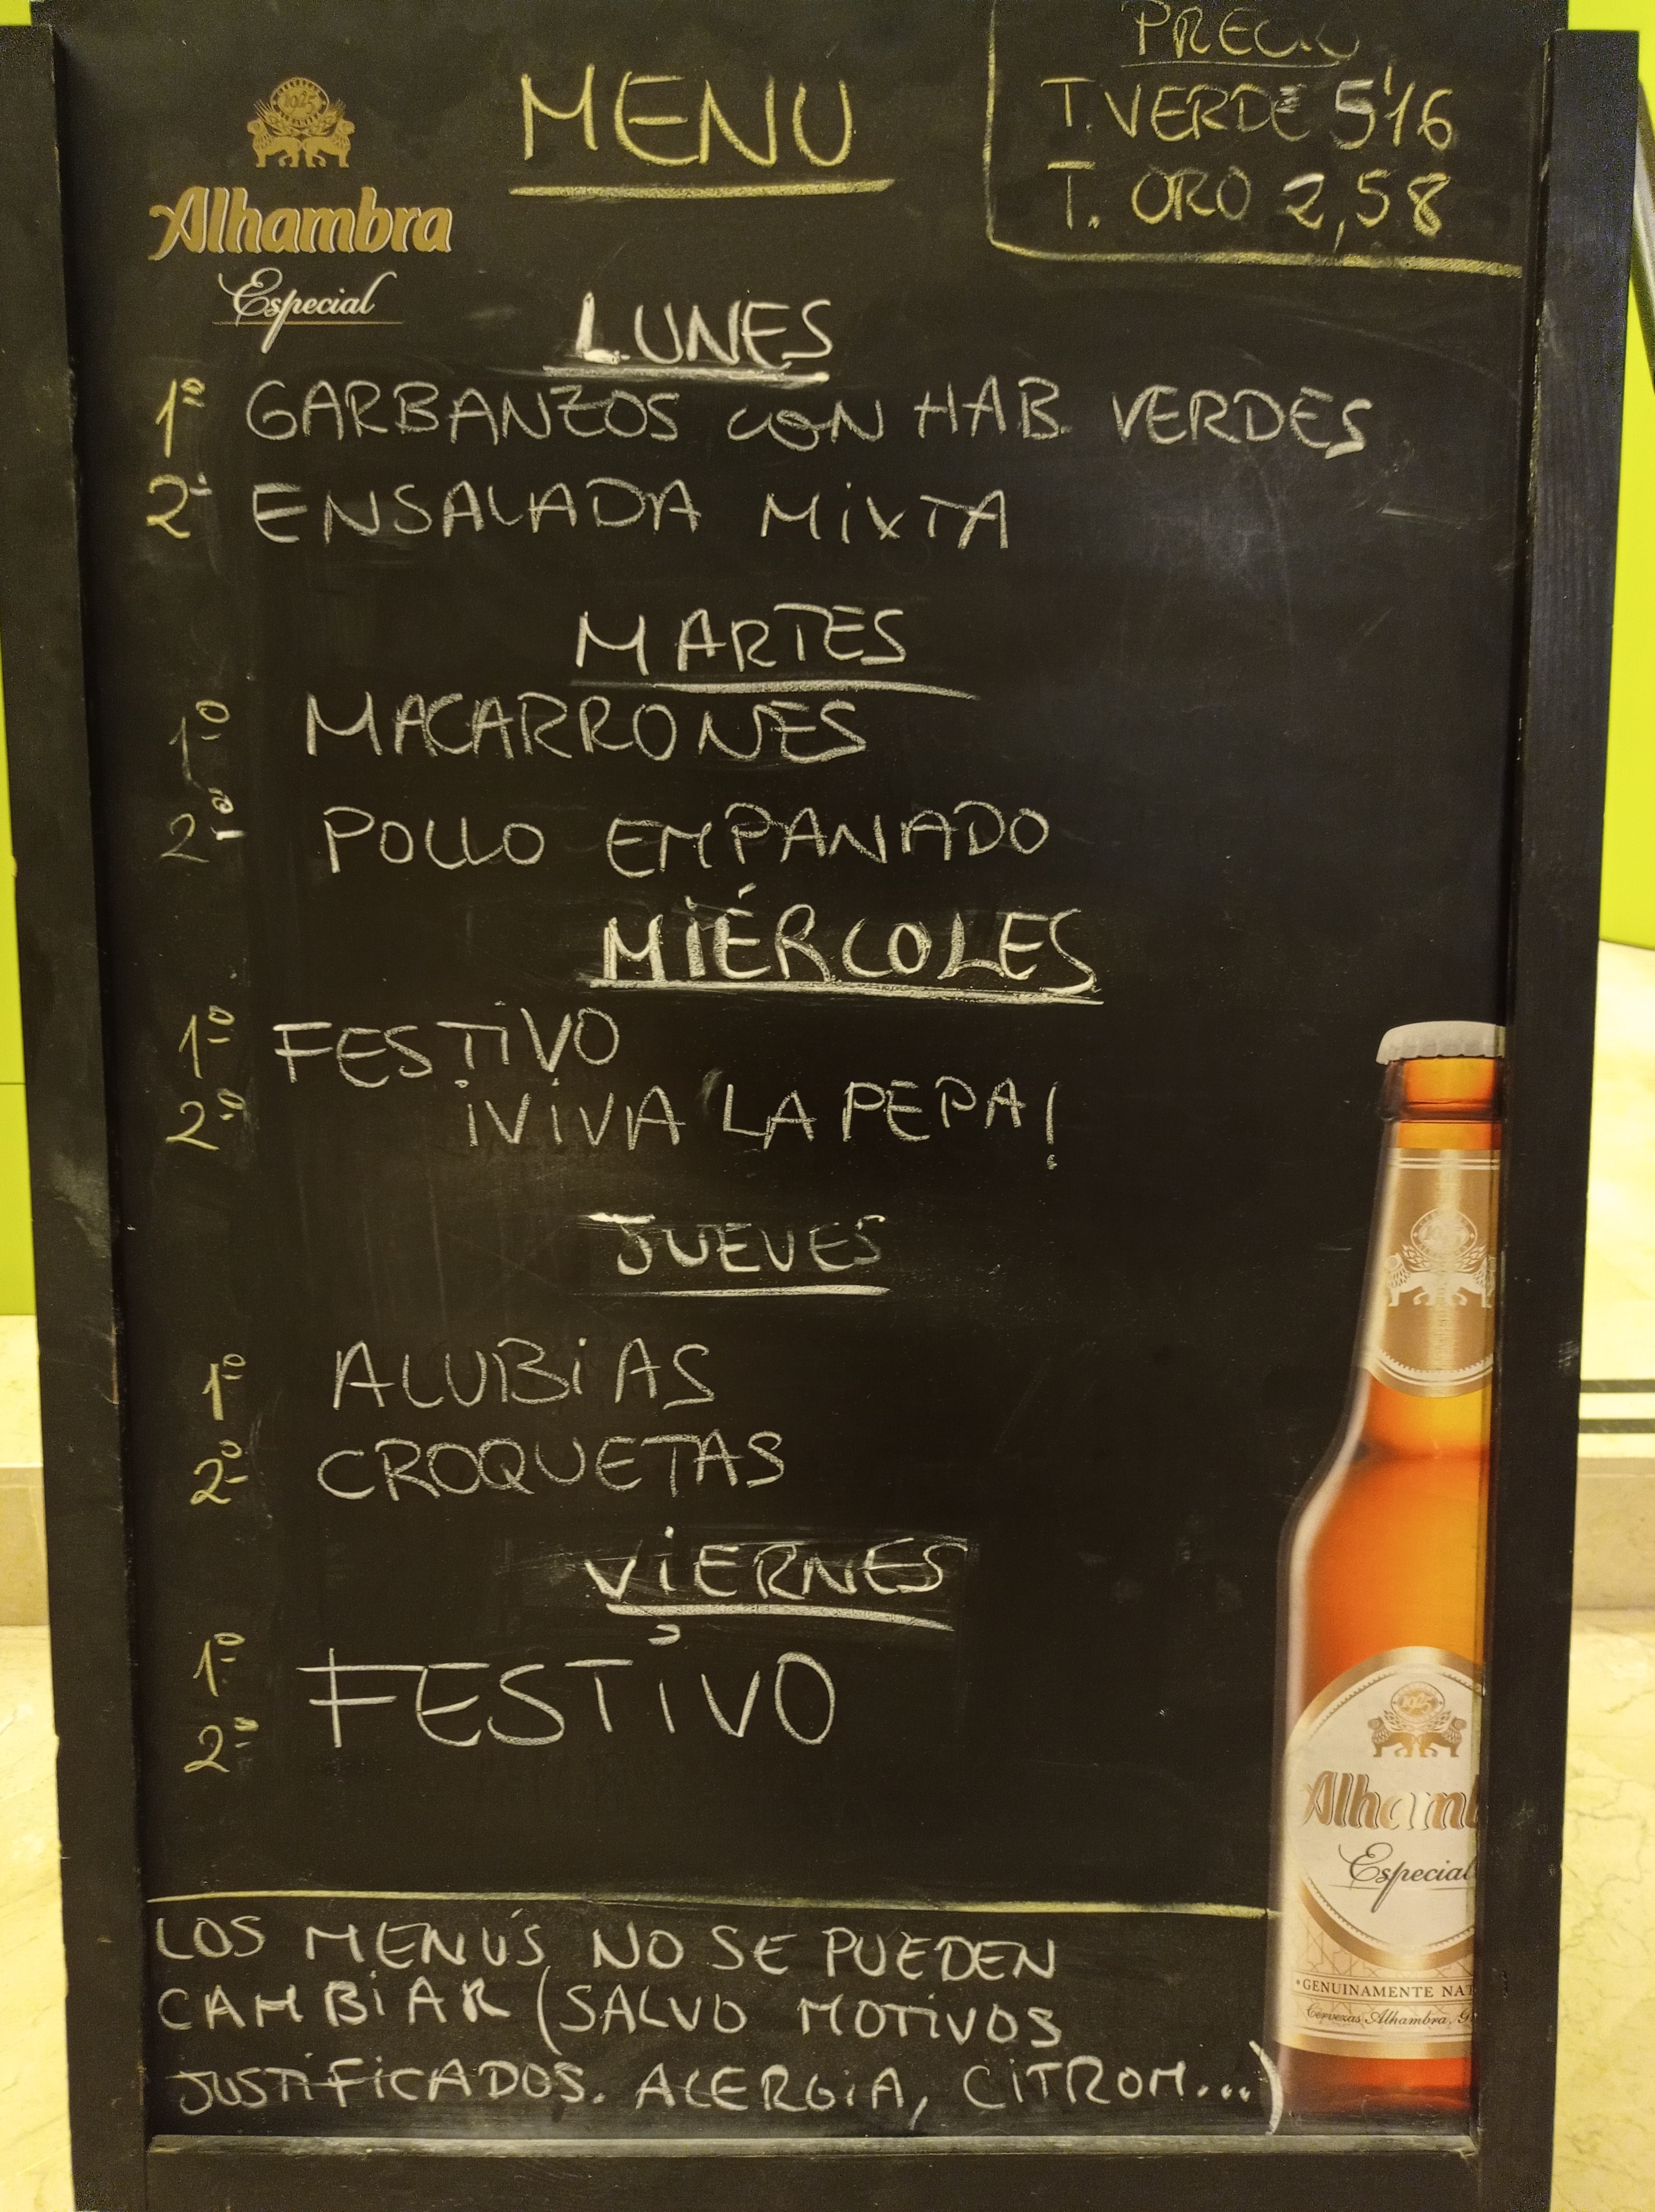 PRECIO
MENU
T. VERDE 5'16
T. ORO 2,58
1925
Alhambra
Especial
LUNES
1º GARBANZOS CON HAB. VERDES
2º ENSALADA MIXTA
MARTES
1º MACARRONES
2º POLLO EMPANADO
MIÉRCOLES
1º FESTIVO
2º ¡VIVA LA PEPA!
JUEVES
1º ALUBIAS
2º CROQUETAS
VIERNES
1º FESTIVO
2º
1925
Alhamb
Especial
LOS MENÚS NO SE PUEDEN
CAMBIAR (SALVO MOTIVOS
JUSTIFICADOS. ALERGIA, CITROM...)
GENUINAMENTE NAT
Cervezas Alhambra, G